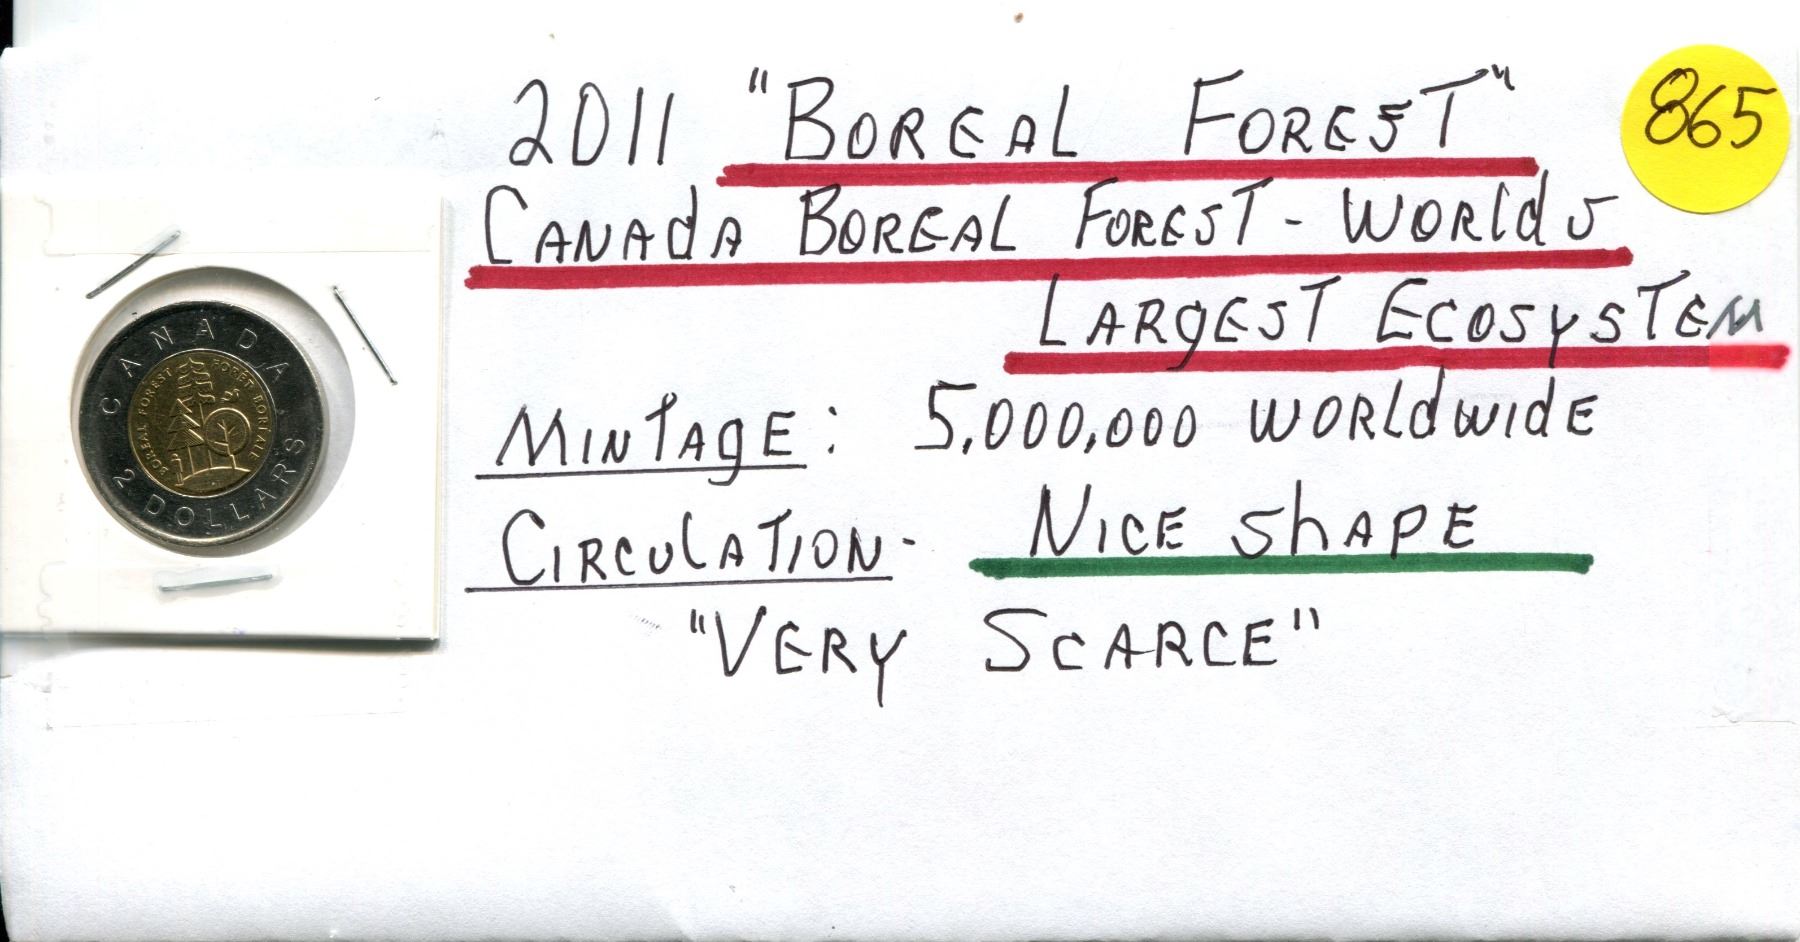 2011 "BOREAL FOREST"
865
CANADA BOREAL FOREST - WORLDS
LARGEST ECOSYSTEM
MINTAGE: 5,000,000 WORLDWIDE
CIRCULATION - NICE SHAPE
"VERY SCARCE"
CANADA
BOREAL FOREST
FORÊT BORÉALE
2 DOLLARS